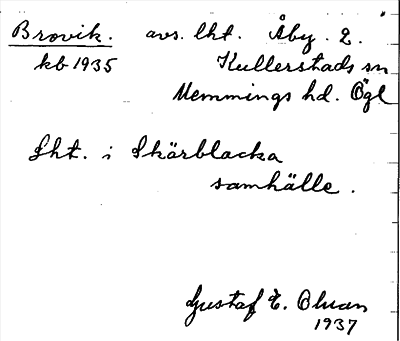 Brovik. avs. lht. Åby. 2.
kb 1935 Kullerstads sn
Memmings hd. Ögl
Lht. i Skärblacka
samhälle.
Gustaf E. Olson
1937